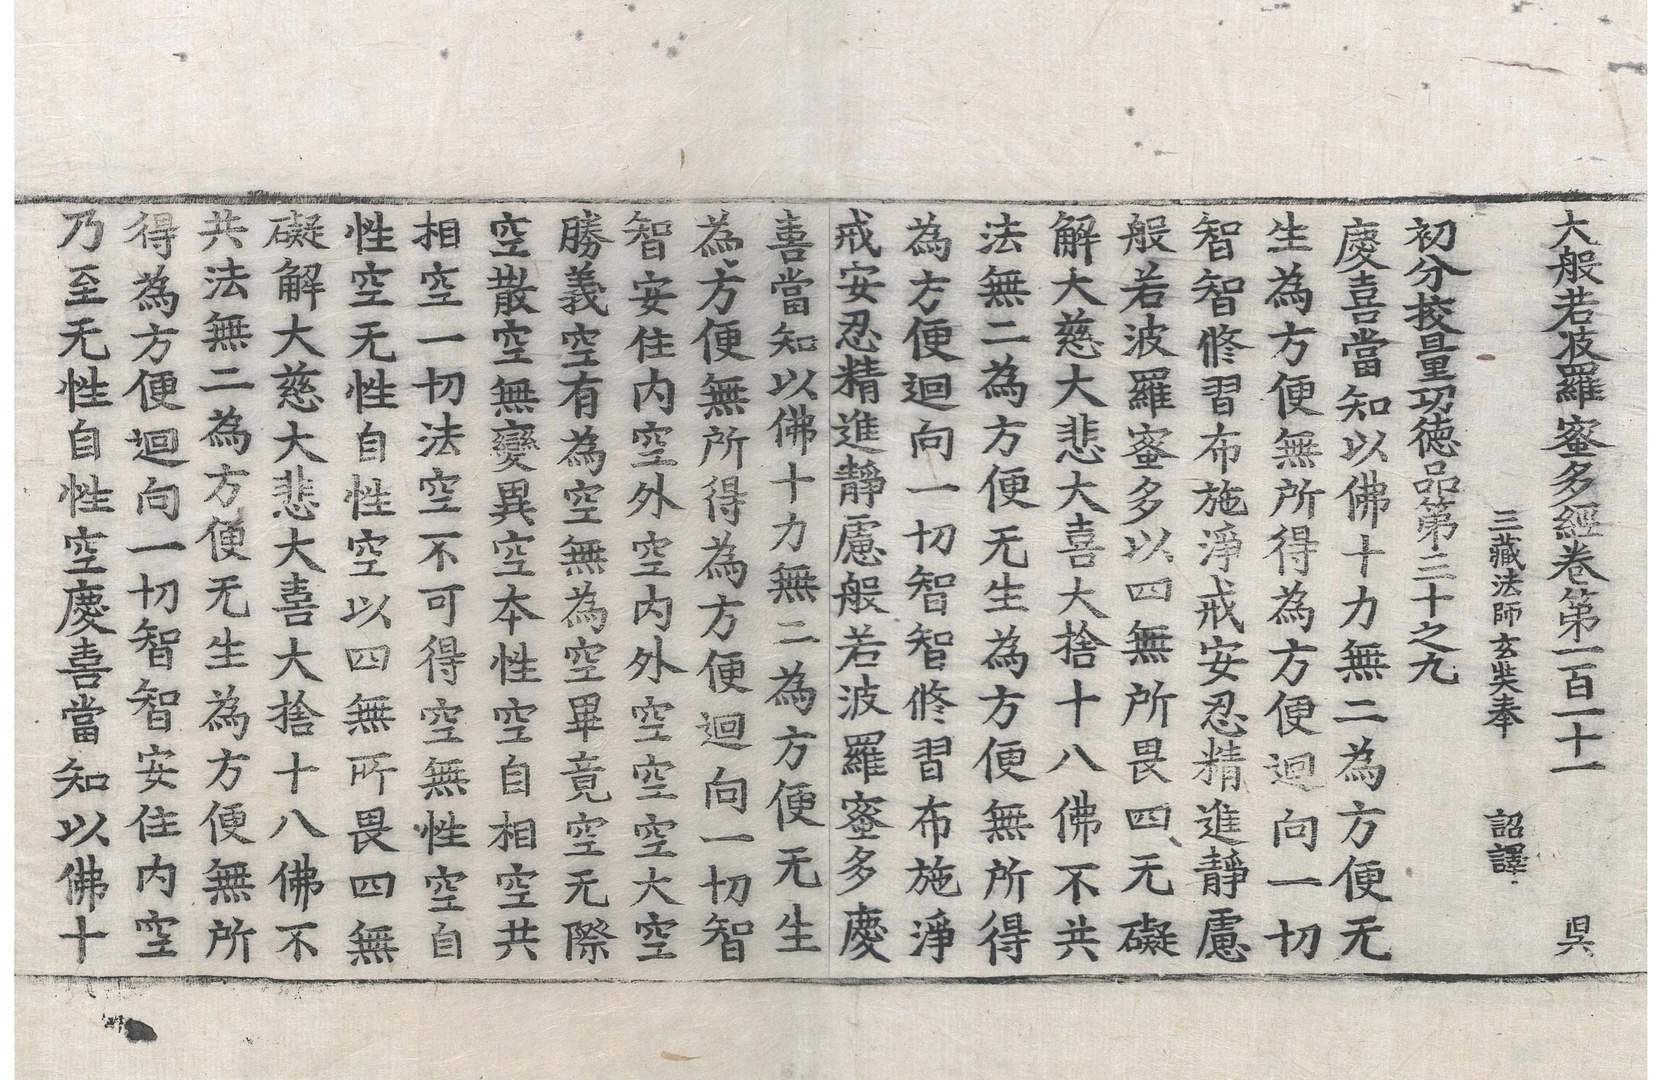 大般若波羅蜜多經卷第一百一十一 昃
三藏法師玄奘奉 詔譯
初分挍量功德品第三十之九
慶喜當知以佛十力無二為方便无
生為方便無所得為方便迴向一切
智智修習布施淨戒安忍精進靜慮
般若波羅蜜多以四無所畏四无礙
解大慈大悲大喜大捨十八佛不共
法無二為方便无生為方便無所得
為方便迴向一切智智修習布施淨
戒安忍精進靜慮般若波羅蜜多慶
喜當知以佛十力無二為方便无生
為方便無所得為方便迴向一切智
智安住內空外空內外空空空大空
勝義空有為空無為空畢竟空无際
空散空無變異空本性空自相空共
相空一切法空不可得空無性空自
性空无性自性空以四無所畏四無
礙解大慈大悲大喜大捨十八佛不
共法無二為方便无生為方便無所
得為方便迴向一切智智安住內空
乃至无性自性空慶喜當知以佛十